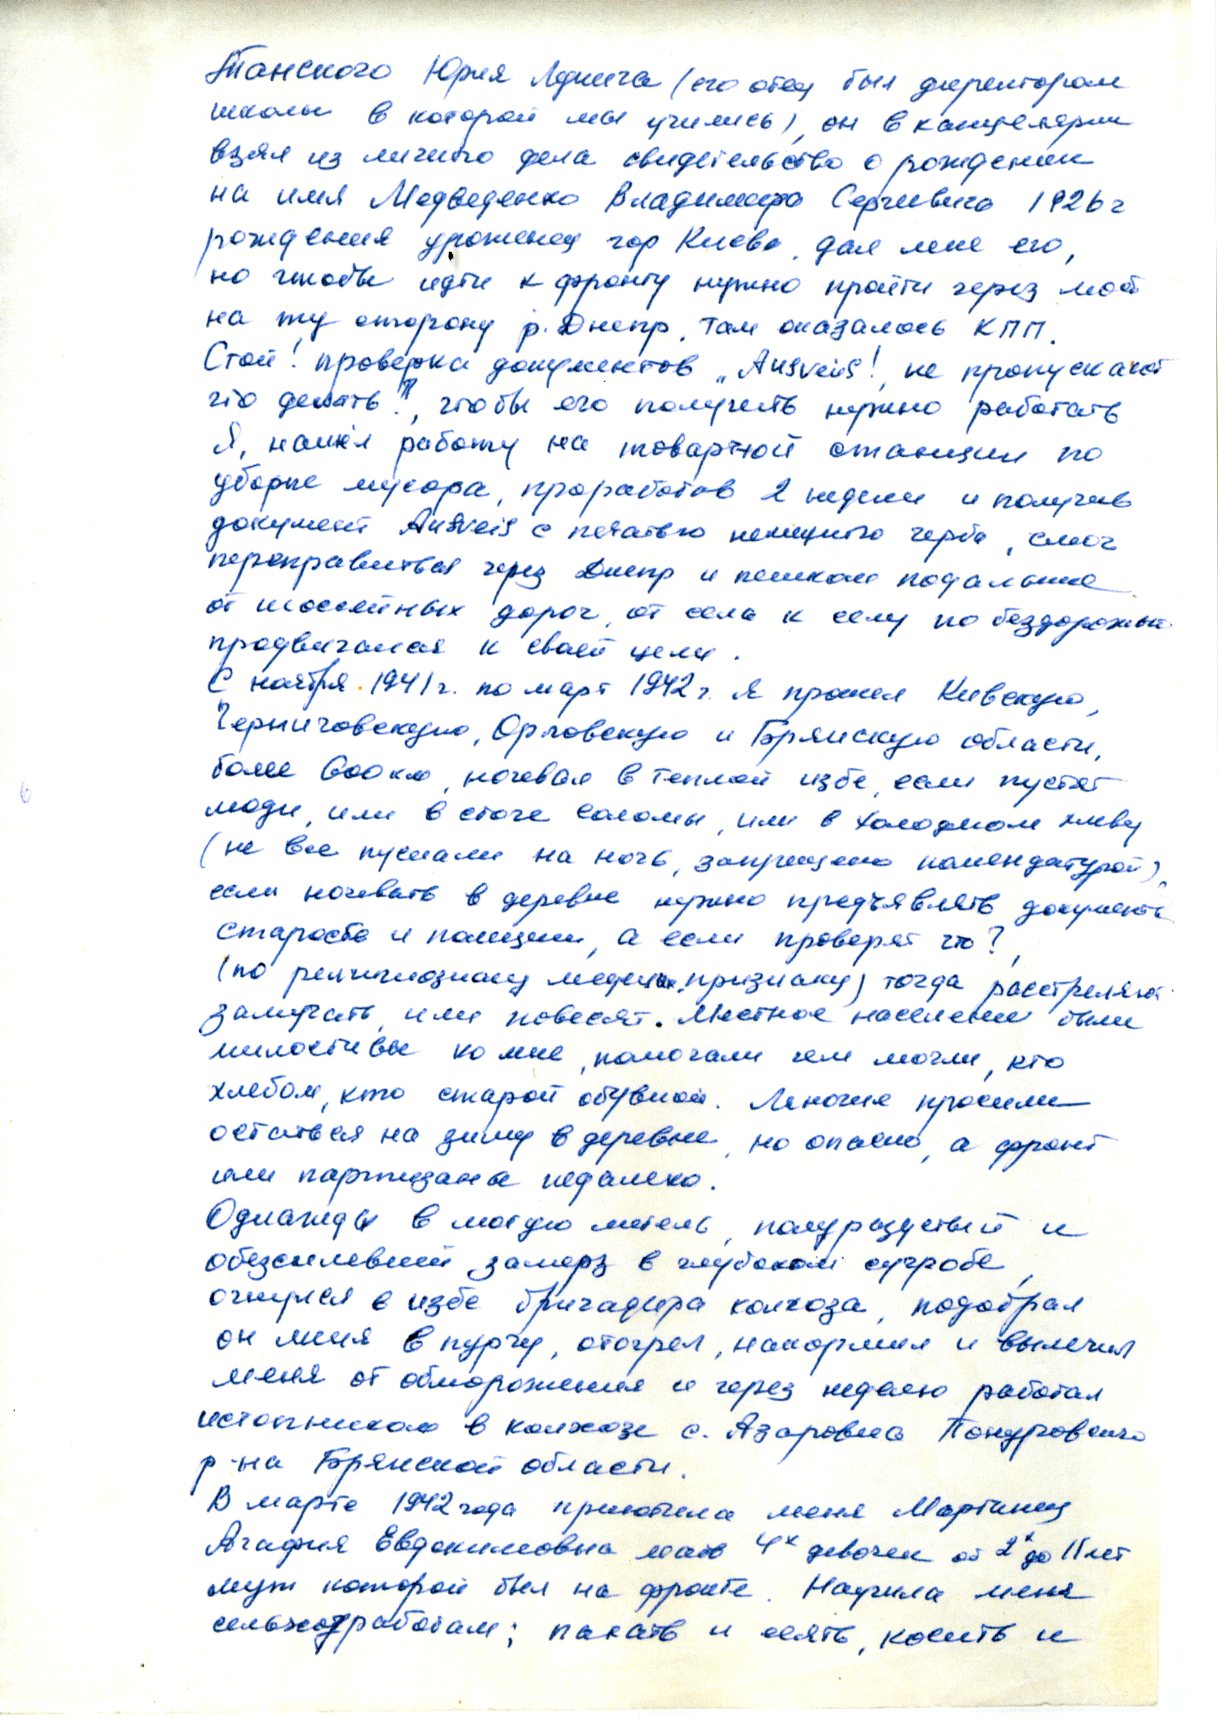 Танского Юрия Лукича (его отец был директором
школы в которой мы учились), он в канцелярии
взял из личного дела свидетельство о рождении
на имя Медведенко Владимира Сергиевича 1926 г
рождения уроженец гор Киева, дал мне его,
но чтобы идти к фронту нужно пройти через мост
на ту сторону р. Днепр, там оказалось КПП.
Стой! проверка документов „Ausveis!, не пропускают
что делать?", чтобы его получить нужно работать
Я, нашёл работу на товарной станции по
уборке мусора, проработов 2 недели и получив
документ Ausveis с печатью немецкого герба, смог
переправиться через Днепр и пешком подальше
от шоссейных дорог, от села к селу по бездорожью
продвигался к своей цели.
С ноября 1941 г. по март 1942 г. я прошел Киевскую,
Черниговскую, Орловскую и Брянскую области,
более 600 км, ночевал в теплой избе, если пустят
люди, или в стоге соломы, или в холодном хлеву
(не все пускали на ночь, запрещено комендатурой),
если ночевать в деревне нужно предъявлять документы
старосте и полиции, а если проверят что?,
(по религиозному медицин. признаку) тогда расстреляют
замучать, или повесят. Местное население были
милостивы ко мне, помогали чем могли, кто
хлебом, кто старой обувкой. Многие просили
остаться на зиму в деревне, но опасно, а фронт
или партизаны недалеко.
Однажды в лютую метель, полураздетый и
обезсилевший замерз в глубоком сугробе,
очнулся в избе бригадира колхоза, подобрал
он меня в пургу, отогрел, накормил и вылечил
меня от обморожения и через неделю работал
истопником в колхозе с. Азаровка Понуровского
р-на Брянской области.
В марте 1942 года приютила меня Мартинец
Агафия Евдокимовна мать 4х девочек от 2х до 11 лет
муж которой был на фронте. Научила меня
сельхозработам; пахать и сеять, косить и